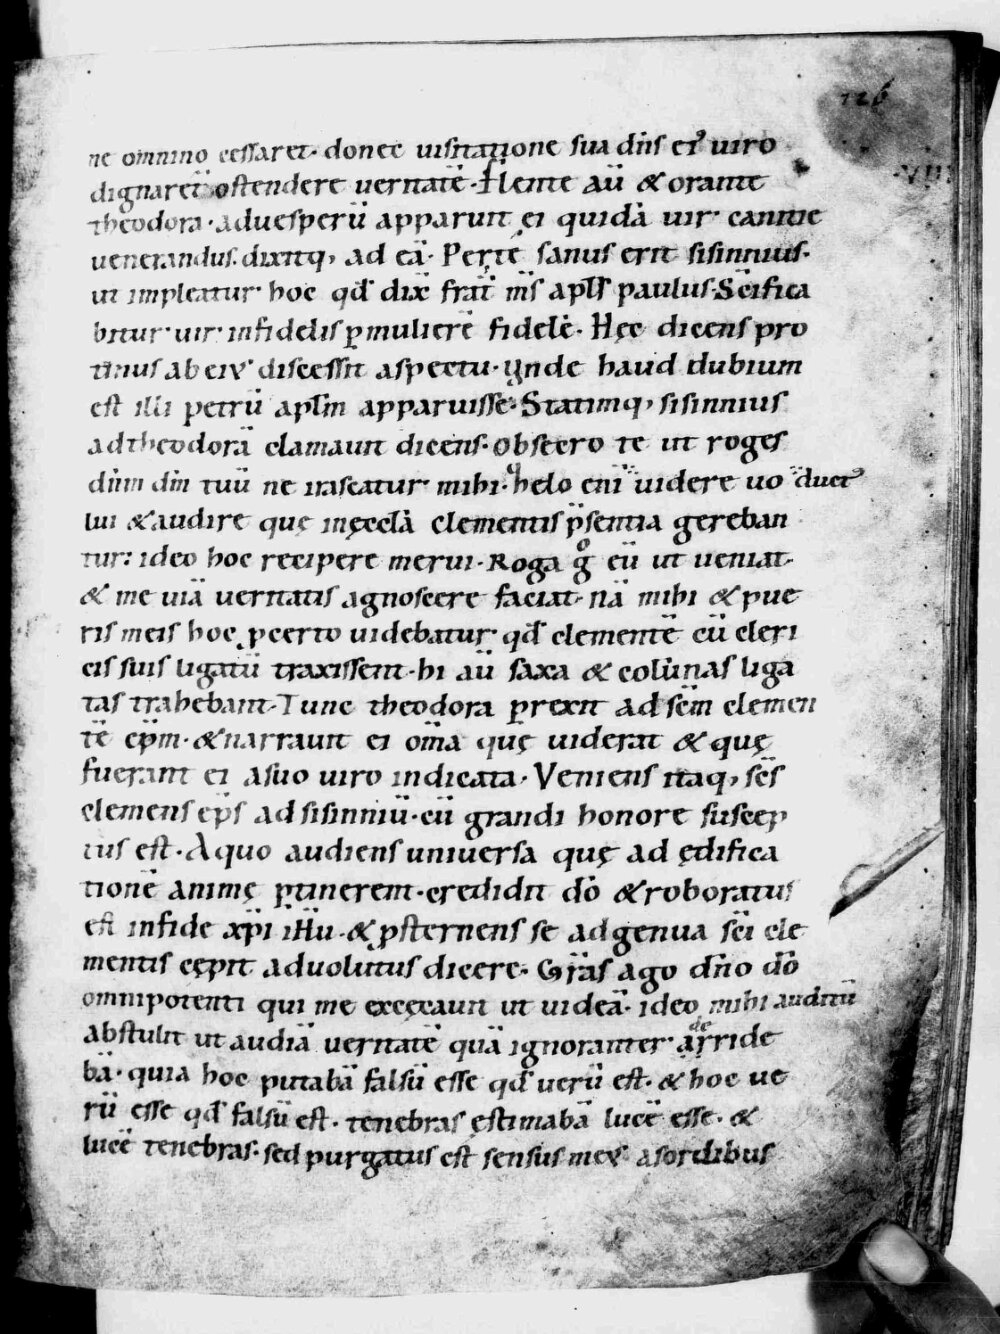 126
VIII
ne omnino cessaret· donec uisitatione sua dn̄s ei᾽ uiro
dignaret᾽ ostendere ueritatē· Flente aū & orante
theodora· aduesperū apparuit ei quidā uir· canitie
uenerandus· dixitq; ad eā· Per te sanus erit sisinnius·
ut impleatur· hoc qd̄ dix̄ frat̄ m̄s apl̄s paulus· Sc̄ifica
bitur· uir· infidelis p̲ mulierē fidelē· Hęc dicens pro
tinus ab eiuˀ discessit aspectu· Unde haud dubium
est illi petrū apl̄m apparuisse· Statimq; sisinnius
ad theodorā clamauit dicens· obsecro te ut roges
dn̄m dm̄ tuū ne irascatur· mihi· helo enī uidere uo duct᾽
lui & audire quę in ęcclā clementis p̄sentia gereban
tur: ideo hoc recipere merui· Roga gͦ eū ut ueniat·
& me uiā ueritatis agnoscere faciat· nā mihi & pue
ris meis hoc p̲certo uidebatur· qd̄ clementē cū cleri
cis suis ligatū traxissent· hi aū saxa & colūnas liga
tas trahebant· Tunc theodora p̲rexit ad sc̄m clemen
tē ep̄m· & narrauit ei om̄a quę uiderat & quę
fuerant ei a suo uiro indicata· Veniens itaq; sc̄s
clemens ep̄s ad sisinniū· cū grandi honore suscep
tus est· A quo audiens uniuersa quę ad ędifica
tionē animę p̲tinerent· credidit dō & roboratus
est in fide xp̄i ih̄u· & p̲sternens se ad genua sc̄i cle
mentis cępit aduolutus dicere· Gr̄as ago dn̄o dō
omnipotenti qui me excęcauit ut uideā· ideo mihi auditū
abstulit ut audiā ueritatē quā ignoranter· de arride
bā· quia hoc putabā falsū esse qd̄ uerū est· & hoc ue
rū esse qd̄ falsū est· tenebras ęstimabā lucē esse· &
lucē tenebras· sed purgatus est sensus meuˀ a sordibus